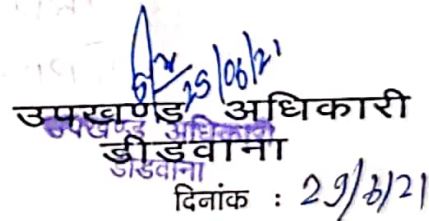 25/06/21
उपखण्ड अधिकारी
उपखण्ड अधिकारी
डीडवाना
डीडवाना
दिनांक : 29/6/21